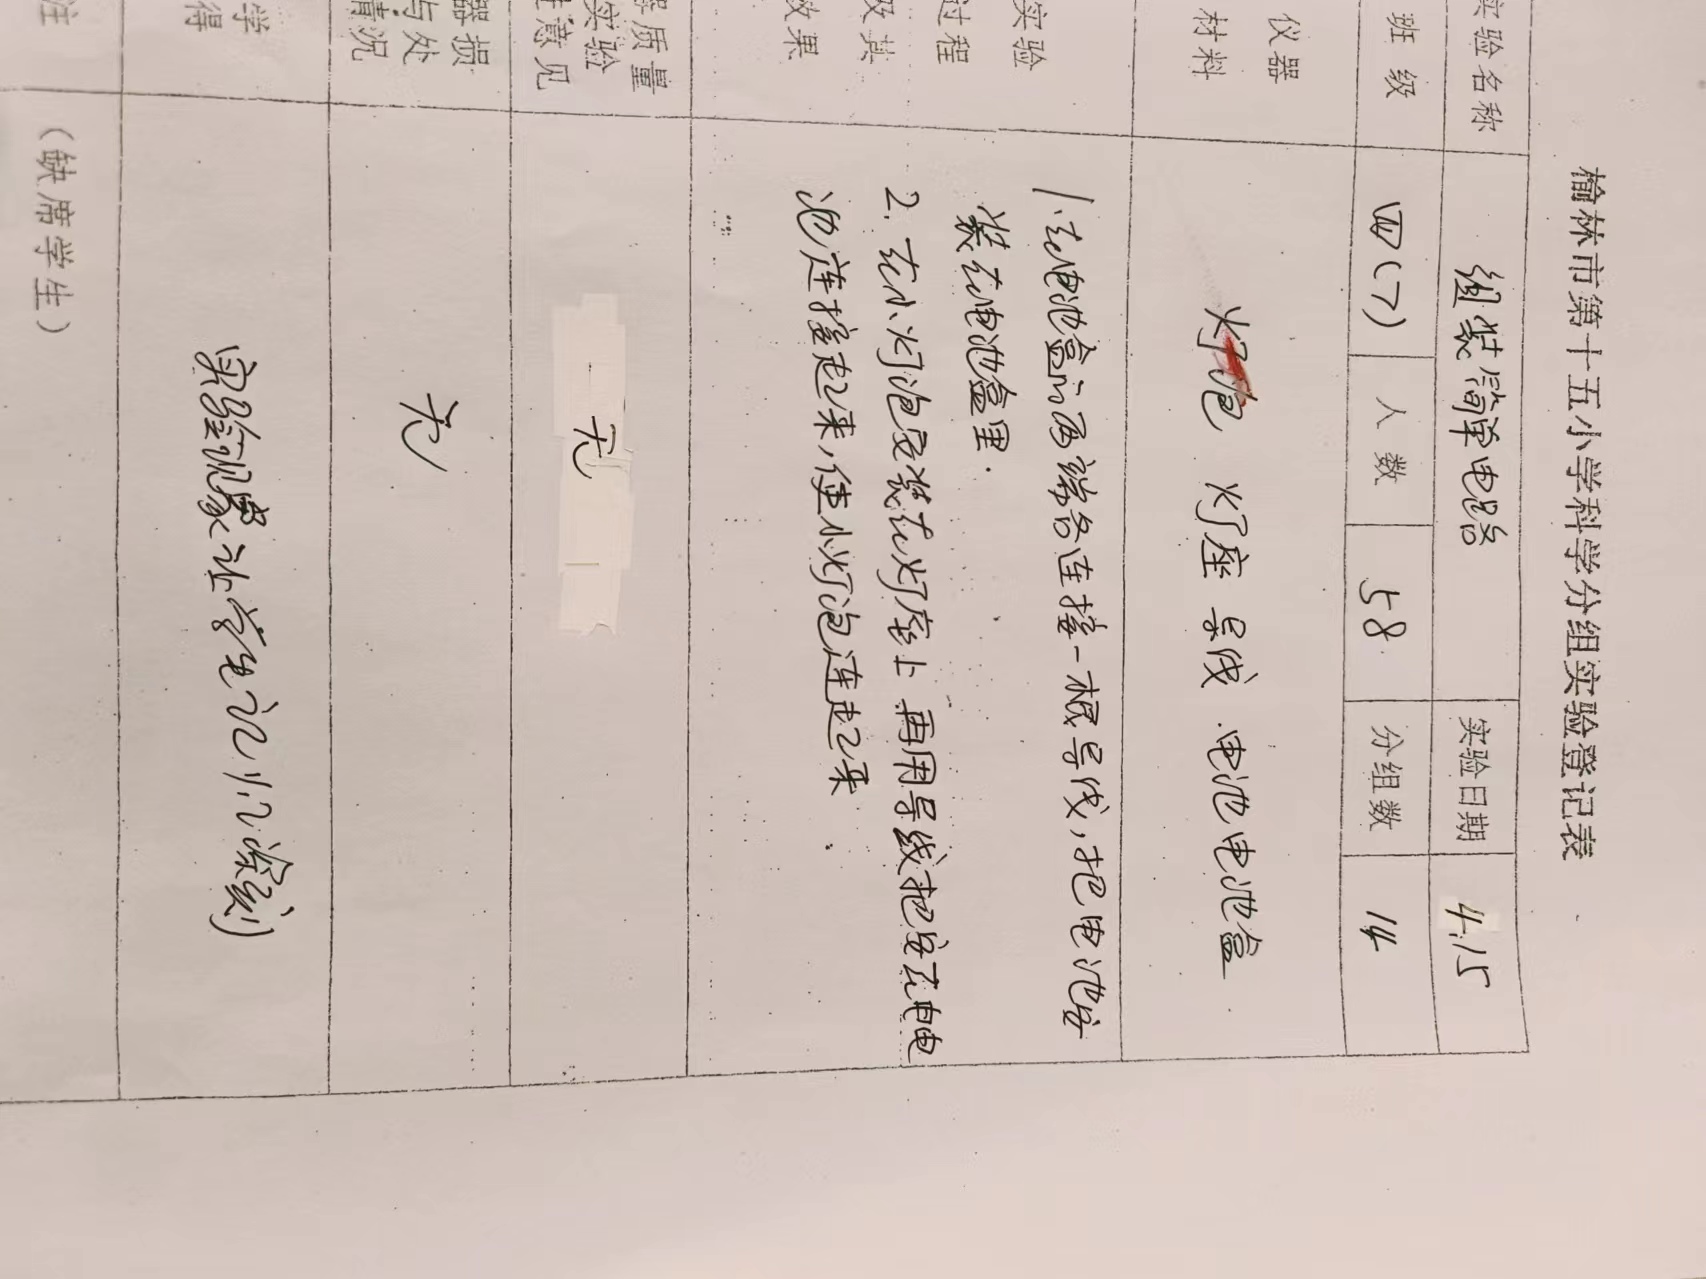 榆林市第十五小学科学分组实验登记表
实验名称 组装简单电路 实验日期 4.15
班级 四(7) 人数 58 分组数 14
仪器
材料
灯泡 灯座 导线 电池 电池盒
实验
过程
及其
效果
1.在电池盒的两端各连接一根导线,把电池安
装在电池盒里.
2.在小灯泡安装在灯座上 再用导线把安在电电
池连接起来,使小灯泡连起来
质量
实验
意见
无
器损
与处
情况
无
学
得
实验现象让学生记忆深刻
注
(缺席学生)